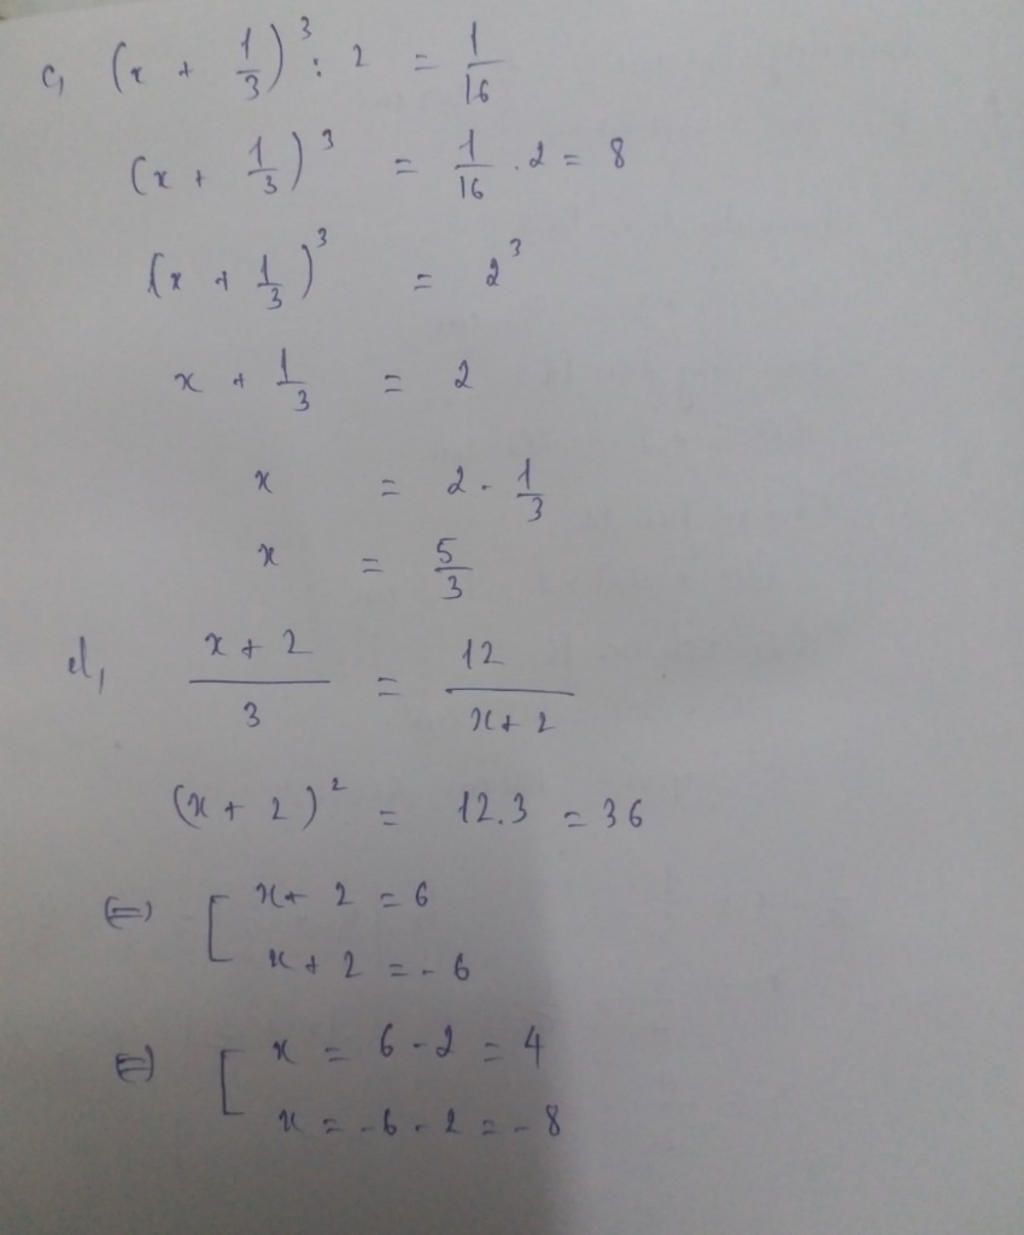 c, (x + 1/3)³ : 2 = 1/16
(x + 1/3)³ = 1/16 . 2 = 8
(x + 1/3)³ = 2³
x + 1/3 = 2
x = 2 - 1/3
x = 5/3
d, (x + 2)/3 = 12/(x + 2)
(x + 2)² = 12.3 = 36
⇔ [ x + 2 = 6
x + 2 = - 6
⇔ [ x = 6 - 2 = 4
x = - 6 - 2 = - 8